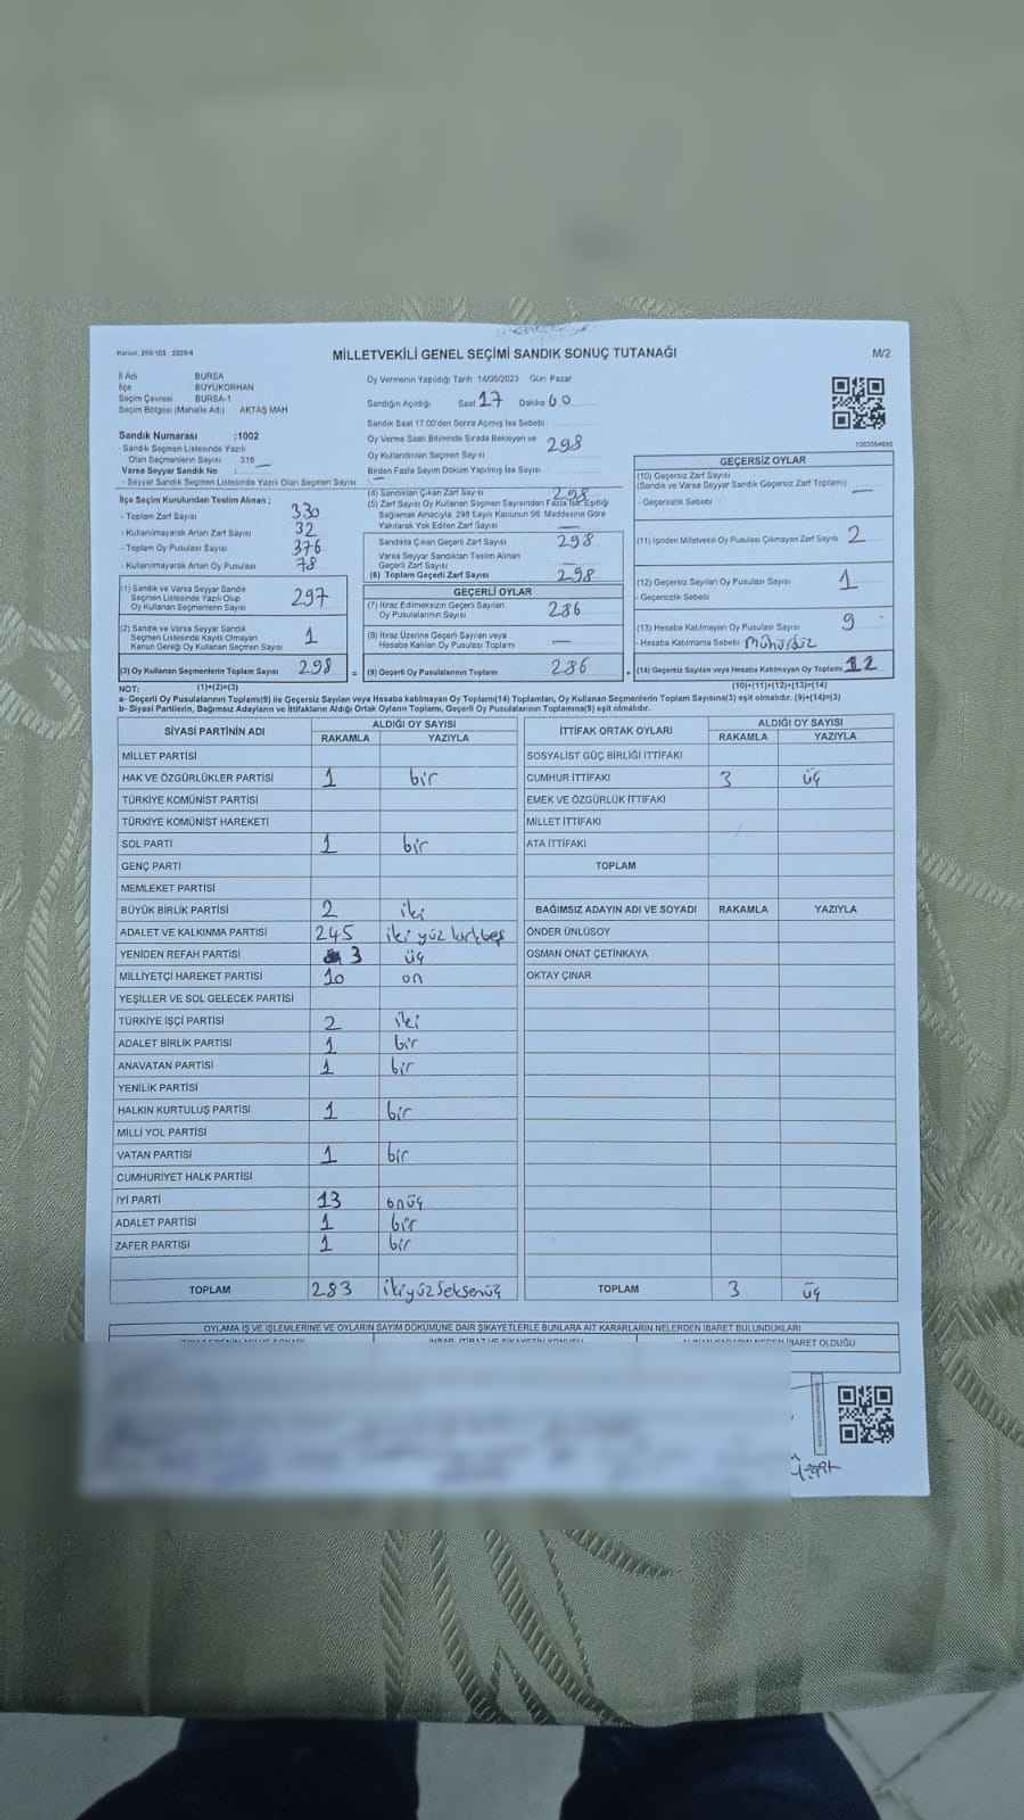 MİLLETVEKİLİ GENEL SEÇİMİ SANDIK SONUÇ TUTANAĞI
M/2
İl Adı BURSA
İlçe BÜYÜKORHAN
Seçim Çevresi BURSA-1
Seçim Bölgesi (Mahalle Adı) AKTAŞ MAH
Sandık Numarası :1002
- Sandık Seçmen Listesinde Yazılı
Olan Seçmenlerin Sayısı 316
Varsa Seyyar Sandık No
- Seyyar Sandık Seçmen Listesinde Yazılı Olan Seçmen Sayısı
İlçe Seçim Kurulundan Teslim Alınan ;
- Toplam Zarf Sayısı 330
- Kullanılmayarak Artan Zarf Sayısı 32
- Toplam Oy Pusulası Sayısı 376
- Kullanılmayarak Artan Oy Pusulası 78
(1) Sandık ve Varsa Seyyar Sandık
Seçmen Listesinde Yazılı Olup
Oy Kullanan Seçmenlerin Sayısı 297
(2) Sandık ve Varsa Seyyar Sandık
Seçmen Listesinde Kayıtlı Olmayan
Kanun Gereği Oy Kullanan Seçmen Sayısı 1
(3) Oy Kullanan Seçmenlerin Toplam Sayısı 298
(1)+(2)=(3)
Oy Vermenin Yapıldığı Tarih 14/05/2023 Gün Pazar
Sandığın Açıldığı Saat 17 Dakika 00
Sandık Saat 17.00'den Sonra Açılmış İse Sebebi
Oy Verme Saati Bitiminde Sırada Bekleyen ve
Oy Kullandırılan Seçmen Sayısı 298
Birden Fazla Sayım Döküm Yapılmış İse Sayısı
(4) Sandıktan Çıkan Zarf Sayısı 298
(5) Zarf Sayısı Oy Kullanan Seçmen Sayısından Fazla İse, Eşitliği
Sağlamak Amacıyla, 298 Sayılı Kanunun 98. Maddesine Göre
Yakılarak Yok Edilen Zarf Sayısı
Sandıkta Çıkan Geçerli Zarf Sayısı 298
Varsa Seyyar Sandıktan Teslim Alınan
Geçerli Zarf Sayısı
(6) Toplam Geçerli Zarf Sayısı 298
GEÇERLİ OYLAR
(7) İtiraz Edilmeksizin Geçerli Sayılan
Oy Pusulalarının Sayısı 286
(8) İtiraz Üzerine Geçerli Sayılan veya
Hesaba Katılan Oy Pusulası Toplamı
= (9) Geçerli Oy Pusulalarının Toplamı 286
GEÇERSİZ OYLAR
(10) Geçersiz Zarf Sayısı
(Sandık ve Varsa Seyyar Sandık Geçersiz Zarf Toplamı)
- Geçersizlik Sebebi
(11) İçinden Milletvekili Oy Pusulası Çıkmayan Zarf Sayısı 2
(12) Geçersiz Sayılan Oy Pusulası Sayısı 1
- Geçersizlik Sebebi
(13) Hesaba Katılmayan Oy Pusulası Sayısı 9
- Hesaba Katılmama Sebebi mühürsüz
+ (14) Geçersiz Sayılan veya Hesaba Katılmayan Oy Toplamı 12
(10)+(11)+(12)+(13)=(14)
NOT:
a- Geçerli Oy Pusulalarının Toplamı(9) ile Geçersiz Sayılan veya Hesaba katılmayan Oy Toplamı(14) Toplamları, Oy Kullanan Seçmenlerin Toplam Sayısına(3) eşit olmalıdır. (9)+(14)=(3)
b- Siyasi Partilerin, Bağımsız Adayların ve İttifakların Aldığı Ortak Oyların Toplamı, Geçerli Oy Pusulalarının Toplamına(9) eşit olmalıdır.
SİYASİ PARTİNİN ADI ALDIĞI OY SAYISI
RAKAMLA YAZIYLA
MİLLET PARTİSİ
HAK VE ÖZGÜRLÜKLER PARTİSİ 1 bir
TÜRKİYE KOMÜNİST PARTİSİ
TÜRKİYE KOMÜNİST HAREKETİ
SOL PARTİ 1 bir
GENÇ PARTİ
MEMLEKET PARTİSİ
BÜYÜK BİRLİK PARTİSİ 2 iki
ADALET VE KALKINMA PARTİSİ 245 iki yüz kırkbeş
YENİDEN REFAH PARTİSİ 3 üç
MİLLİYETÇİ HAREKET PARTİSİ 10 on
YEŞİLLER VE SOL GELECEK PARTİSİ
TÜRKİYE İŞÇİ PARTİSİ 2 iki
ADALET BİRLİK PARTİSİ 1 bir
ANAVATAN PARTİSİ 1 bir
YENİLİK PARTİSİ
HALKIN KURTULUŞ PARTİSİ 1 bir
MİLLİ YOL PARTİSİ
VATAN PARTİSİ 1 bir
CUMHURİYET HALK PARTİSİ
İYİ PARTİ 13 onüç
ADALET PARTİSİ 1 bir
ZAFER PARTİSİ 1 bir
TOPLAM 283 ikiyüzseksenüç
İTTİFAK ORTAK OYLARI ALDIĞI OY SAYISI
RAKAMLA YAZIYLA
SOSYALİST GÜÇ BİRLİĞİ İTTİFAKI
CUMHUR İTTİFAKI 3 üç
EMEK VE ÖZGÜRLÜK İTTİFAKI
MİLLET İTTİFAKI
ATA İTTİFAKI
TOPLAM
BAĞIMSIZ ADAYIN ADI VE SOYADI RAKAMLA YAZIYLA
ÖNDER ÜNLÜSOY
OSMAN ONAT ÇETİNKAYA
OKTAY ÇINAR
TOPLAM 3 üç
OYLAMA İŞ VE İŞLEMLERİNE VE OYLARIN SAYIM DÖKÜMÜNE DAİR ŞİKAYETLERLE BUNLARA AİT KARARLARIN NELERDEN İBARET BULUNDUKLARI